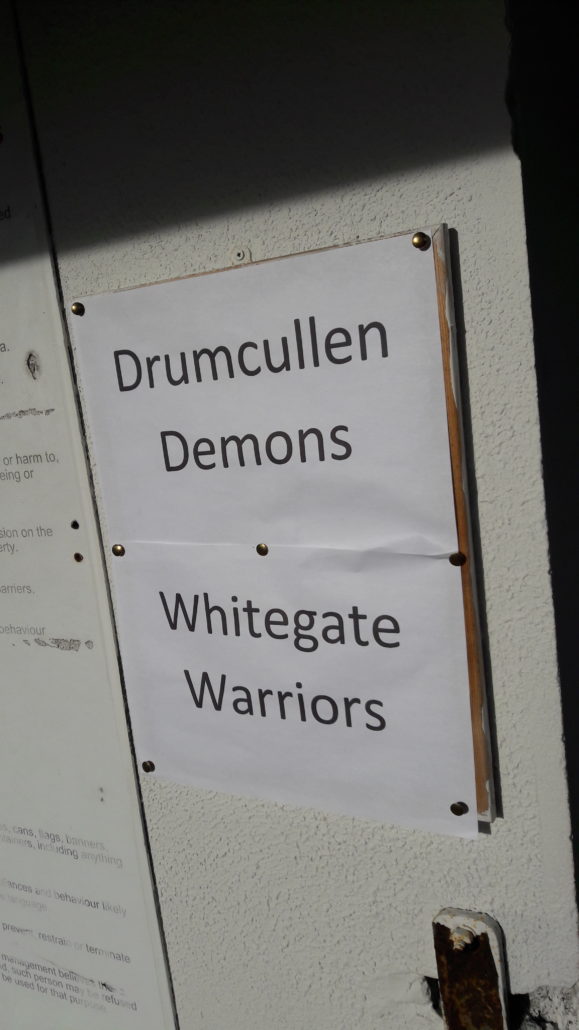 Drumcullen
Demons
Whitegate
Warriors
ed
a.
or harm to,
eing or
sion on the
erty.
arriers.
behaviour
s, cans, flags, banners,
tainers, including anything
ances and behaviour likely
language
prevent, restrain or terminate
management believes
ed, such person may be refused
be used for that purpose